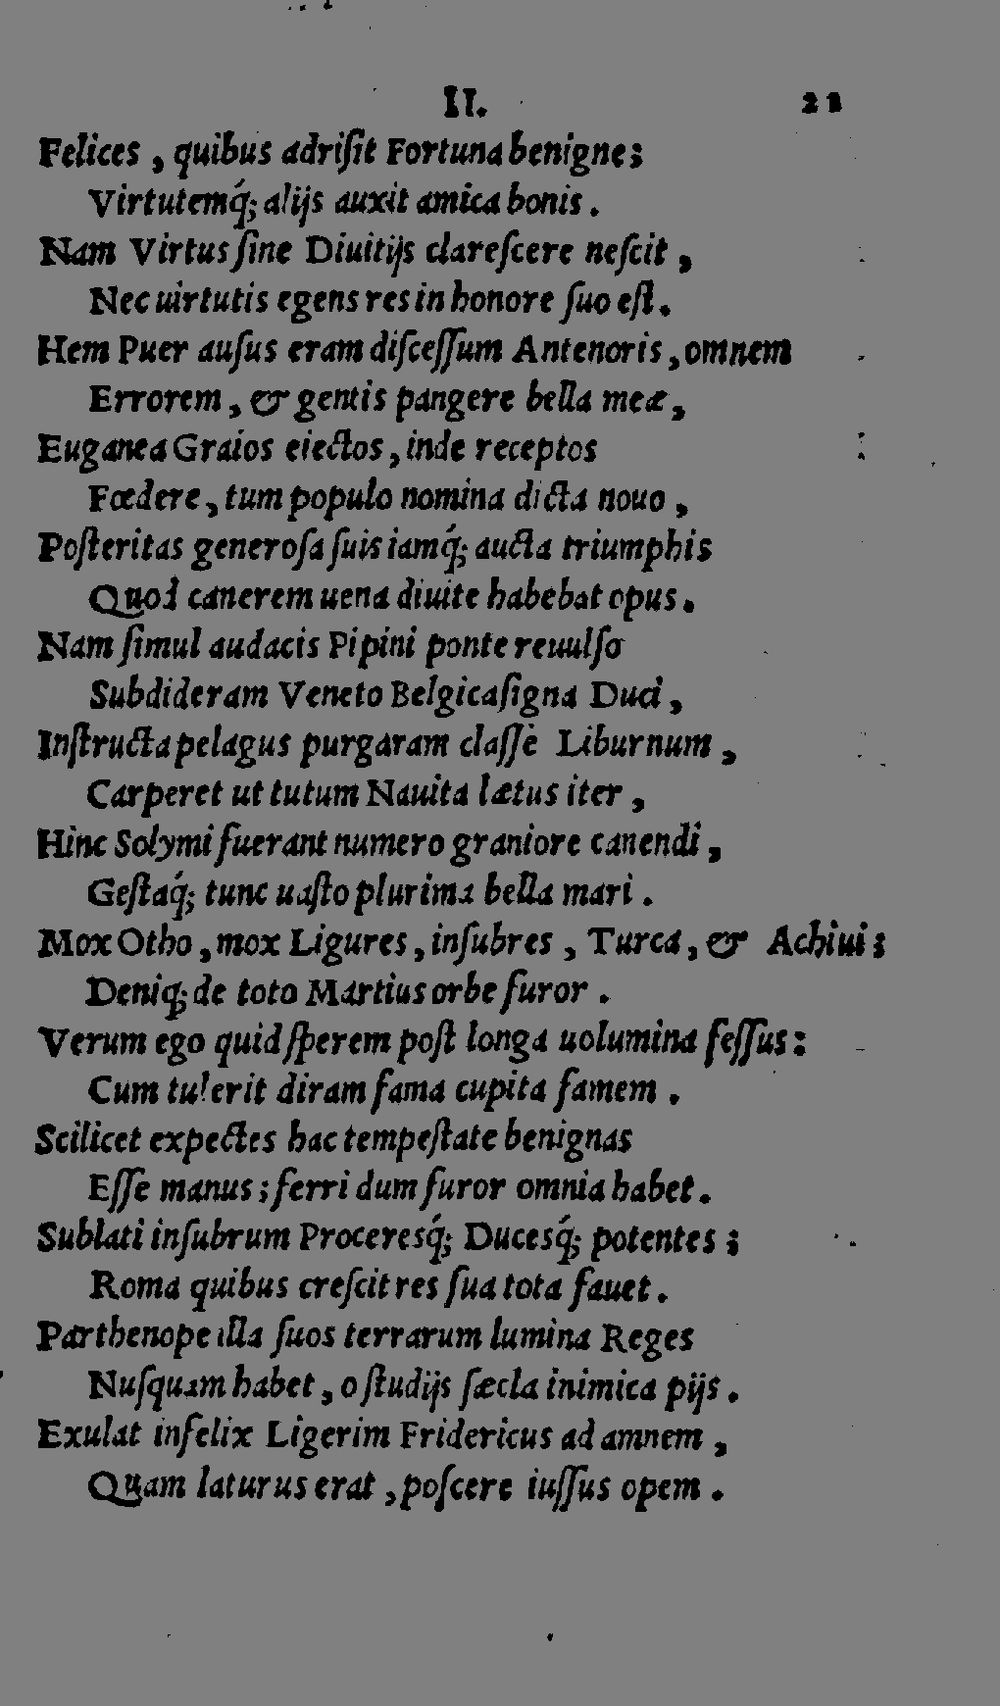 II. 21
Felices, quibus adriſit Fortuna benigne;
Virtutemq́; alijs auxit amica bonis.
Nam Virtus ſine Diuitijs clareſcere neſcit,
Nec uirtutis egens res in honore ſuo eſt.
Hem Puer auſus eram diſceſſum Antenoris, omnem
Errorem, & gentis pangere bella meæ,
Euganea Graios eiectos, inde receptos
Fœdere, tum populo nomina dicta nouo,
Poſteritas generoſa ſuis iamq́; aucta triumphis
Quod canerem uena diuite habebat opus.
Nam ſimul audacis Pipini ponte reuulſo
Subdideram Veneto Belgica ſigna Duci,
Inſtructa pelagus purgaram claſſe Liburnum,
Carperet ut tutum Nauita lætus iter,
Hinc Solymi fuerant numero graniore canendi,
Geſtaq́; tunc uaſto plurima bella mari.
Mox Otho, mox Ligures, inſubres, Turca, & Achiui;
Deniq; de toto Martius orbe furor.
Verum ego quid ſperem poſt longa uolumina feſſus:
Cum tulerit diram fama cupita famem.
Scilicet expectes hac tempeſtate benignas
Eſſe manus; ferri dum furor omnia habet.
Sublati inſubrum Proceresq́; Ducesq́; potentes;
Roma quibus creſcit res ſua tota fauet.
Parthenope illa ſuos terrarum lumina Reges
Nuſquam habet, o ſtudijs ſæcla inimica pijs.
Exulat infelix Ligerim Fridericus ad amnem,
Quam laturus erat, poſcere iuſſus opem.